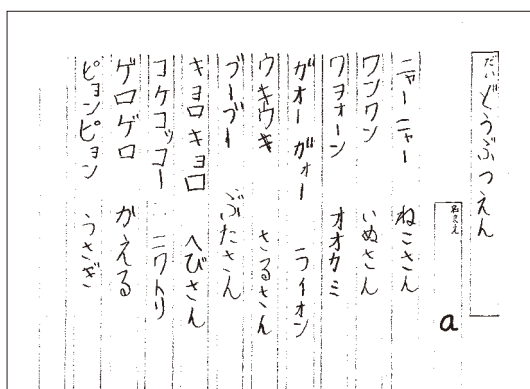 だい どうぶつえん
名まえ a
ニャーニャー ねこさん
ワンワン いぬさん
ワヲォーン オオカミ
ガオーガォー ライオン
ウキウキ さるさん
ブーブー ぶたさん
キョロキョロ へびさん
コケコッコー ニワトリ
ゲロゲロ かえる
ピョンピョン うさぎ